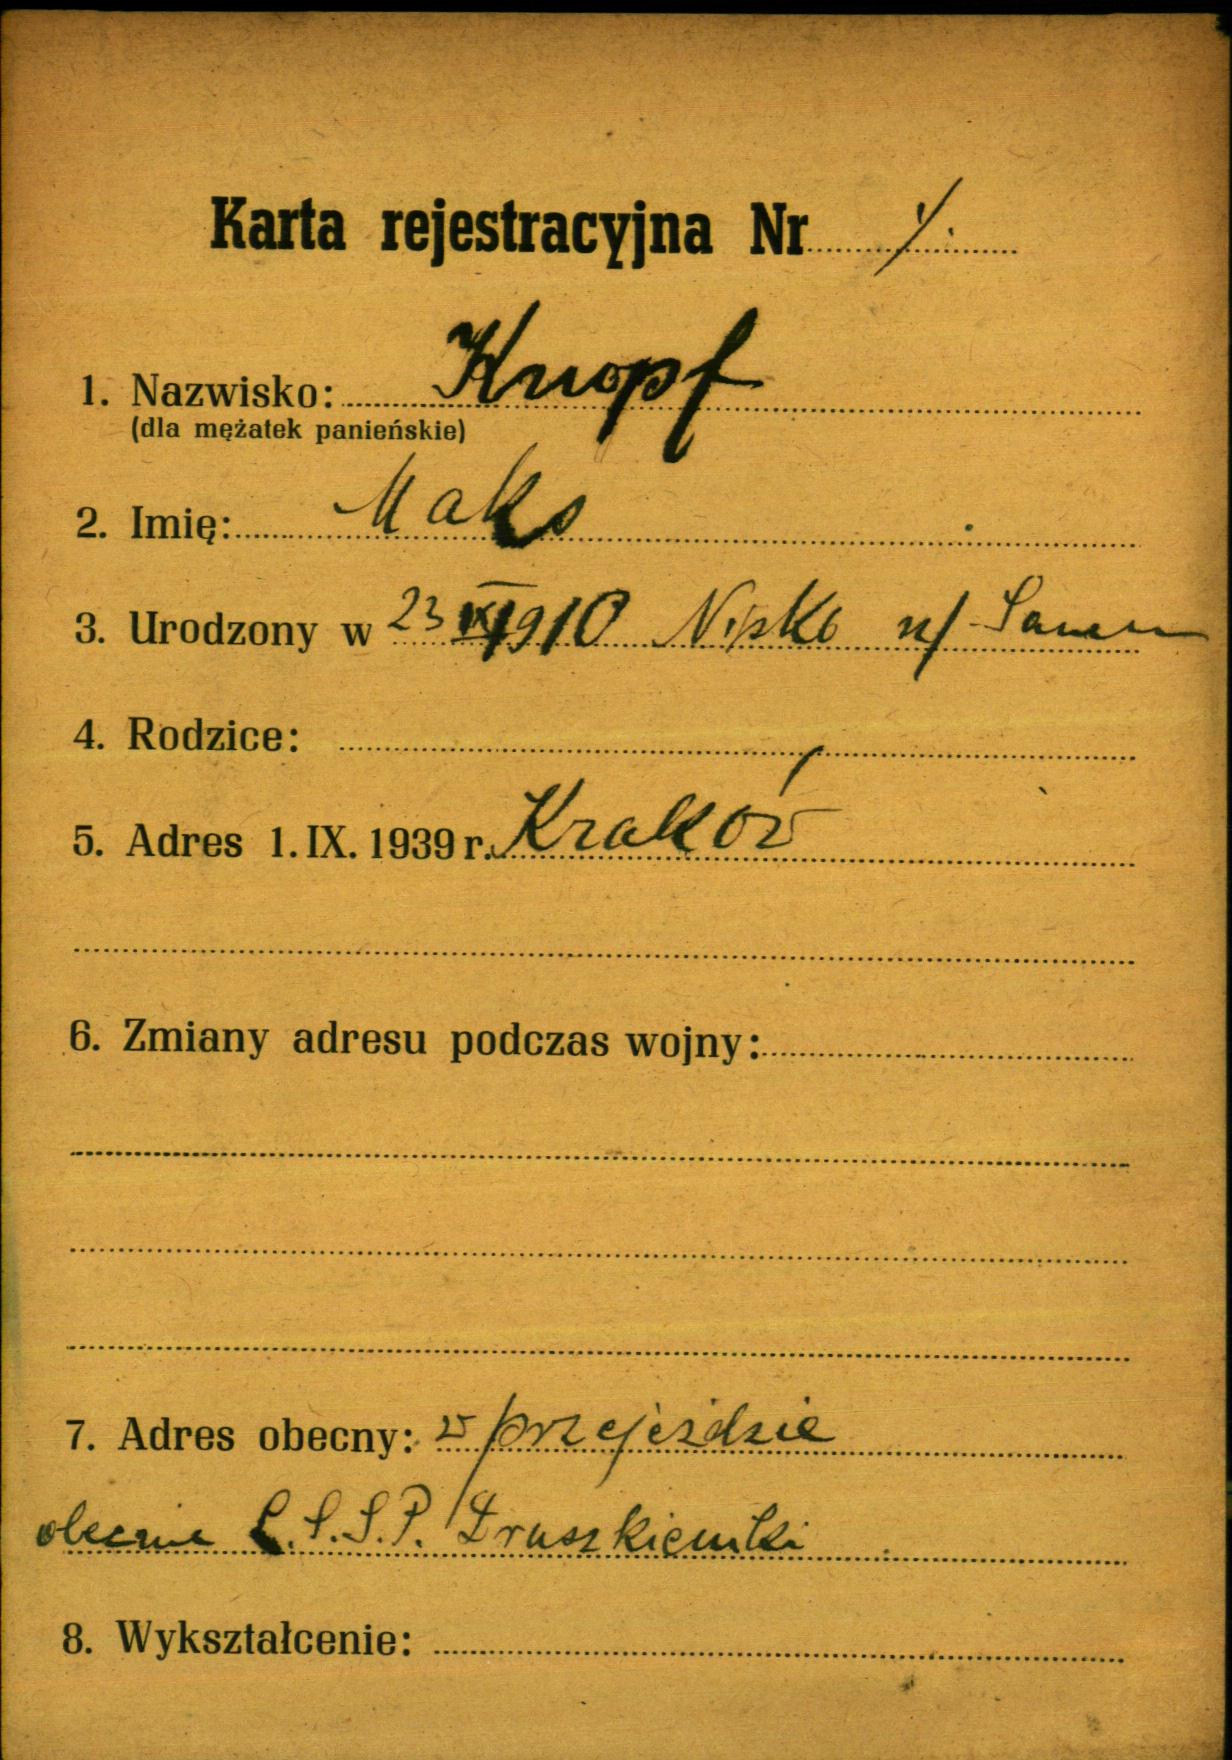 Karta rejestracyjna Nr
1. Nazwisko: Knopf
(dla mężatek panieńskie)
2. Imię: Maks
3. Urodzony w 23 1910 Nisko n/ Sanem
4. Rodzice:
5. Adres 1. IX. 1939 r. Kraków
6. Zmiany adresu podczas wojny:
7. Adres obecny: w przejeździe
obecnie L.S.S.P. Druszkieniki
8. Wykształcenie: